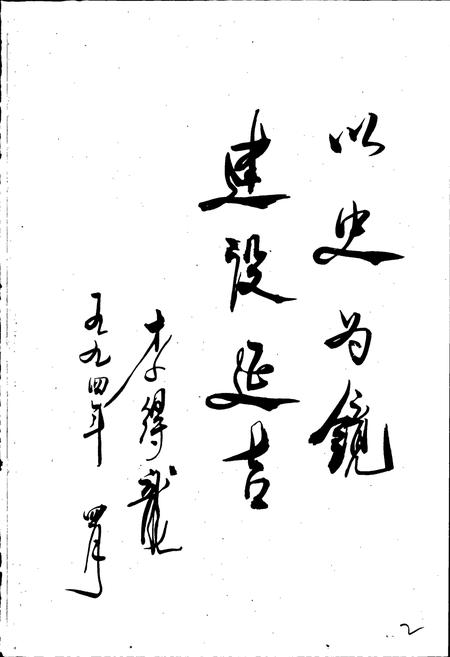 以史为镜
建设延吉
李得龍
一九九四年 四月
2